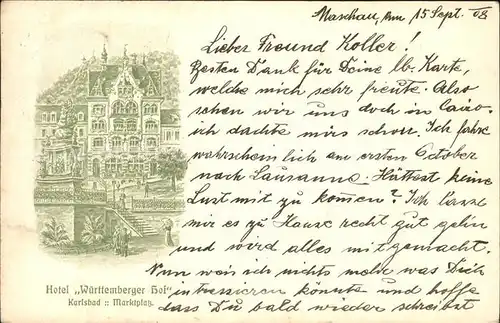 Maschau, Am 15 Sept. 08
Lieber Freund Koller!
Besten Dank für Deine lb. Karte,
welche mich sehr freute. Also
sehen wir uns doch in Cairo.
ich dachte mirs schon. Ich fahre
wahrscheinlich am ersten October
nach Lausanne. Hättest keine
Lust mit zu kom̄en? Ich lasse
mir es zu Hause recht gut gehn
und wird alles mitgemacht.
Nun weis ich nichts mehr was Dich
intressieren könnte und hoffe
dass Du bald wieder schreibst
Hotel „Württemberger Hof"
Karlsbad :: Marktplatz.